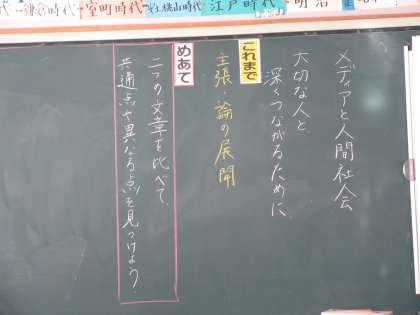 鎌倉時代
室町時代
安土桃山時代
江戸時代
明治
メディアと人間社会
大切な人と
深くつながるために
これまで
主張・論の展開
めあて
二つの文章を比べて、
共通点や異なる点を見つけよう。